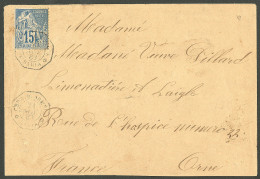 15
Madame
Madame Veuve Villard
Limonadière à Laigle
Rue de l'hospice numéro
France Orne